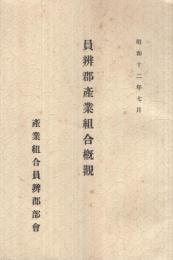 昭和十二年七月
員辨郡產業組合概觀
產業組合員辨郡部會